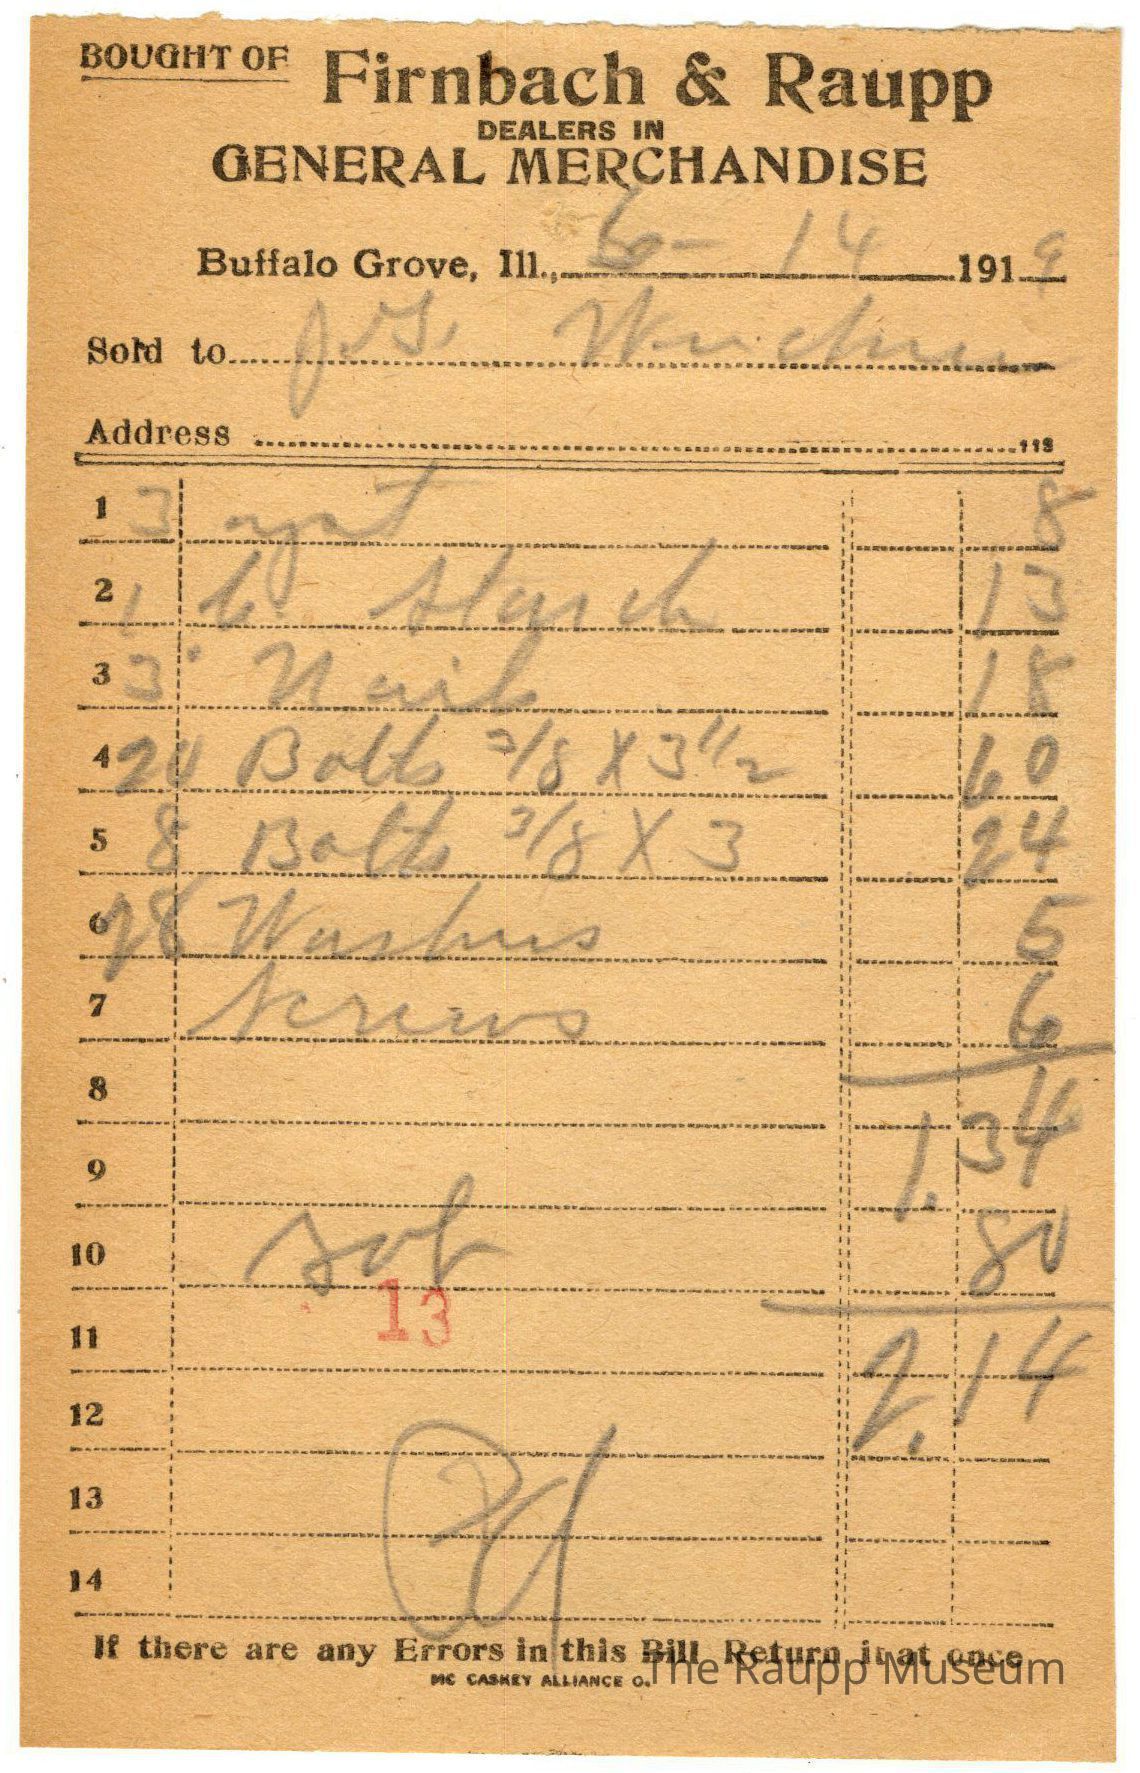 BOUGHT OF Firnbach & Raupp
DEALERS IN
GENERAL MERCHANDISE
Buffalo Grove, Ill., 6-14 1919
Sold to J.G.
Address 113
1 3 8
2 1 b. Starch 13
3 3 Nails 18
4 20 Bolts 3/8 X 3 1/2 60
5 8 Bolts 3/8 X 3 24
6 28 Washers 5
7 Screws 6
8
9 1.34
10 80
13
11
12 2.14
13
14
If there are any Errors in this Bill Return it at once
MC CASKEY ALLIANCE O.
The Raupp Museum